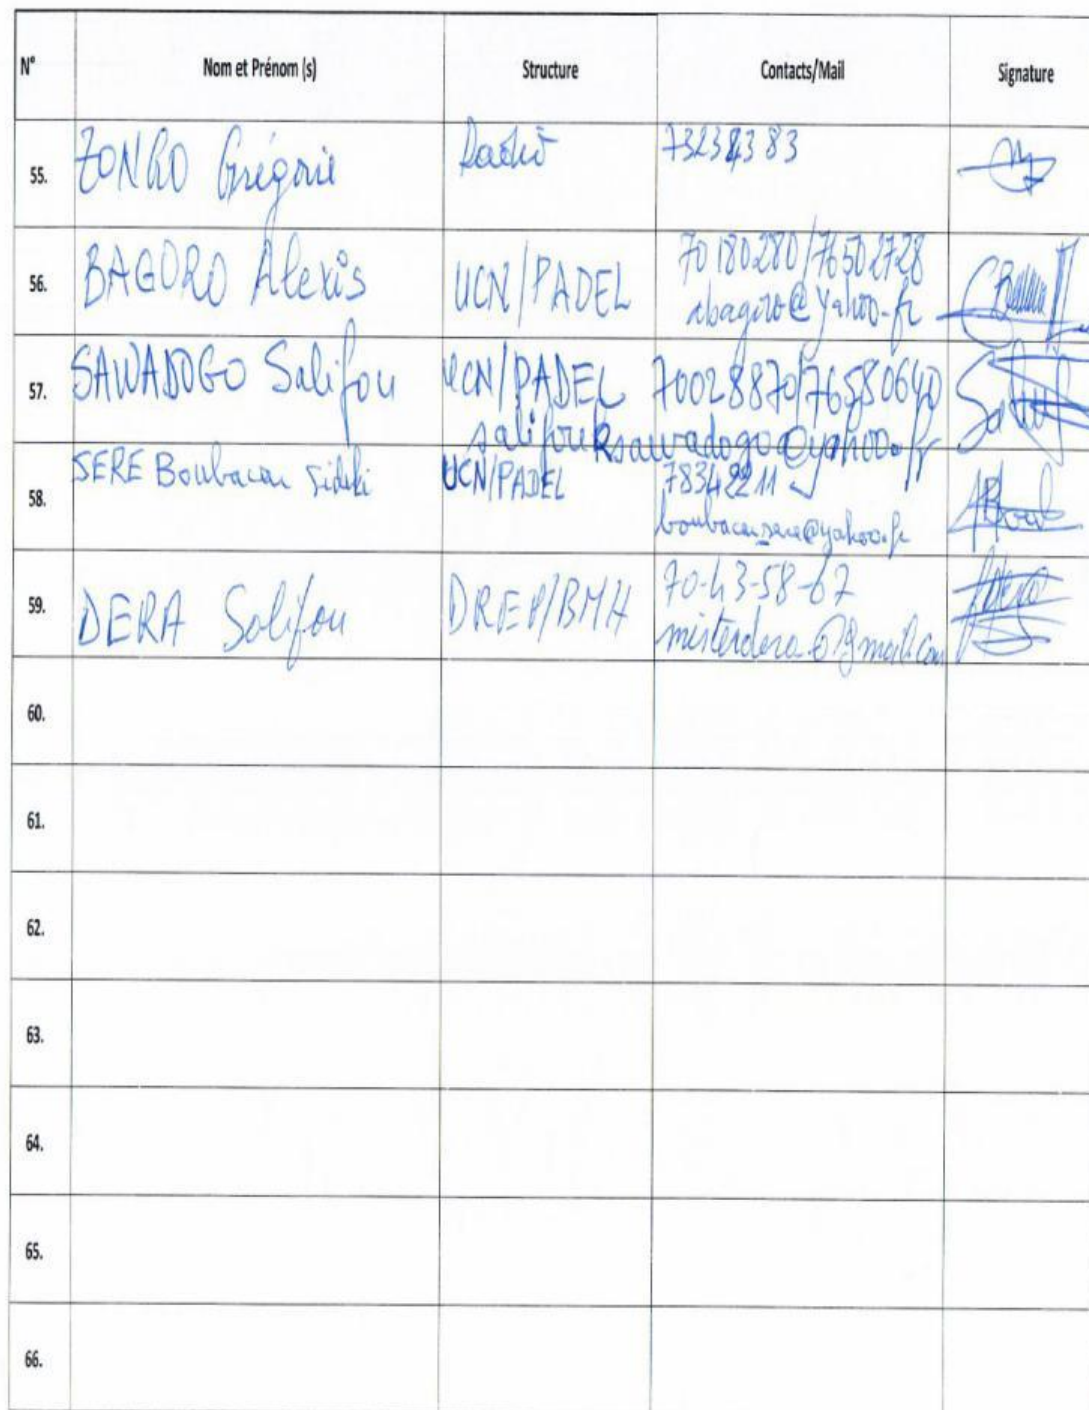 N° Nom et Prénom (s) Structure Contacts/Mail Signature
55. ZONGO Grégoire Radio 73234383
56. BAGORO Alexis UCN/PADEL 70180280/76502728
abagoro@yahoo.fr
57. SAWADOGO Salifou UCN/PADEL 70028870/76580640
salifouksawadogo@yahoo.fr
58. SERE Boubacar Sidiki UCN/PADEL 78342211
boubacarsere@yahoo.fr
59. DERA Salifou DREP/BMH 70-43-58-67
misterdera@gmail.com
60.
61.
62.
63.
64.
65.
66.